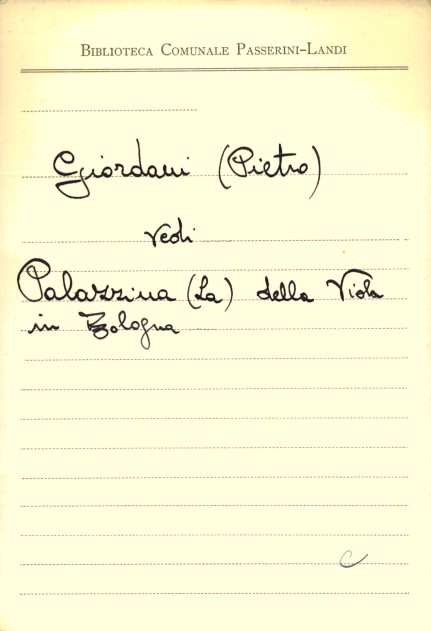 BIBLIOTECA COMUNALE PASSERINI-LANDI
Giordani (Pietro)
vedi
Palazzina (La) della Viola
in Bologna
C